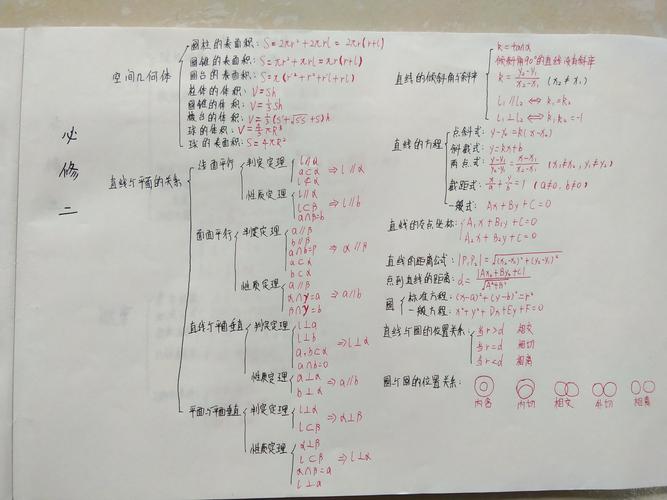 必修二
空间几何体
圆柱的表面积：S=2πr²+2πrl=2πr(r+l)
圆锥的表面积：S=πr²+πrl=πr(r+l)
圆台的表面积：S=π(r'²+r²+r'l+rl)
柱体的体积：V=Sh
圆锥的体积：V=⅓Sh
球的体积：V=4/3πR³
球的表面积：S=4πR²
直线与平面的关系
线面平行
判定定理
l∥a
a⊂α
l⊄α
⇒l∥α
性质定理
l∥α
l⊂β
α∩β=b
⇒l∥b
面面平行
判定定理
a∥β
b∥β
a∩b=P
a⊂α
b⊂α
⇒α∥β
性质定理
α∥β
α∩γ=a
β∩γ=b
⇒a∥b
直线与平面垂直
判定定理
l⊥a
l⊥b
a,b⊂α
a∩b=0
⇒l⊥α
性质定理
a⊥α
b⊥α
⇒a∥b
平面与平面垂直
判定定理
l⊥α
l⊂β
⇒α⊥β
性质定理
α⊥β
l⊂β
α∩β=a
l⊥a
⇒l⊥α
直线的倾斜角与斜率
k=tanα
倾斜角90°的直线没有斜率
k=(y₂-y₁)/(x₂-x₁) (x₂≠x₁)
L₁∥L₂⇔k₁=k₂
L₁⊥L₂⇔k₁k₂=-1
直线的方程
点斜式：y-y₀=k(x-x₀)
斜截式：y=kx+b
两点式：(y-y₁)/(y₂-y₁)=(x-x₁)/(x₂-x₁) (x₁≠x₂,y₁≠y₂)
截距式：x/a+y/b=1 (a≠0,b≠0)
一般式：Ax+By+C=0
直线的交点坐标：
A₁x+B₁y+C=0
A₂x+B₂y+C=0
直线的距离公式：|P₁P₂|=√((x₂-x₁)²+(y₂-y₁)²)
点到直线的距离：d=|Ax₀+By₀+C|/√(A²+B²)
圆
标准方程：(x-a)²+(y-b)²=r²
一般方程：x²+y²+Dx+Ey+F=0
直线与圆的位置关系：
当r>d 相交
当r=d 相切
当r<d 相离
圆与圆的位置关系：
内含 内切 相交 外切 相离